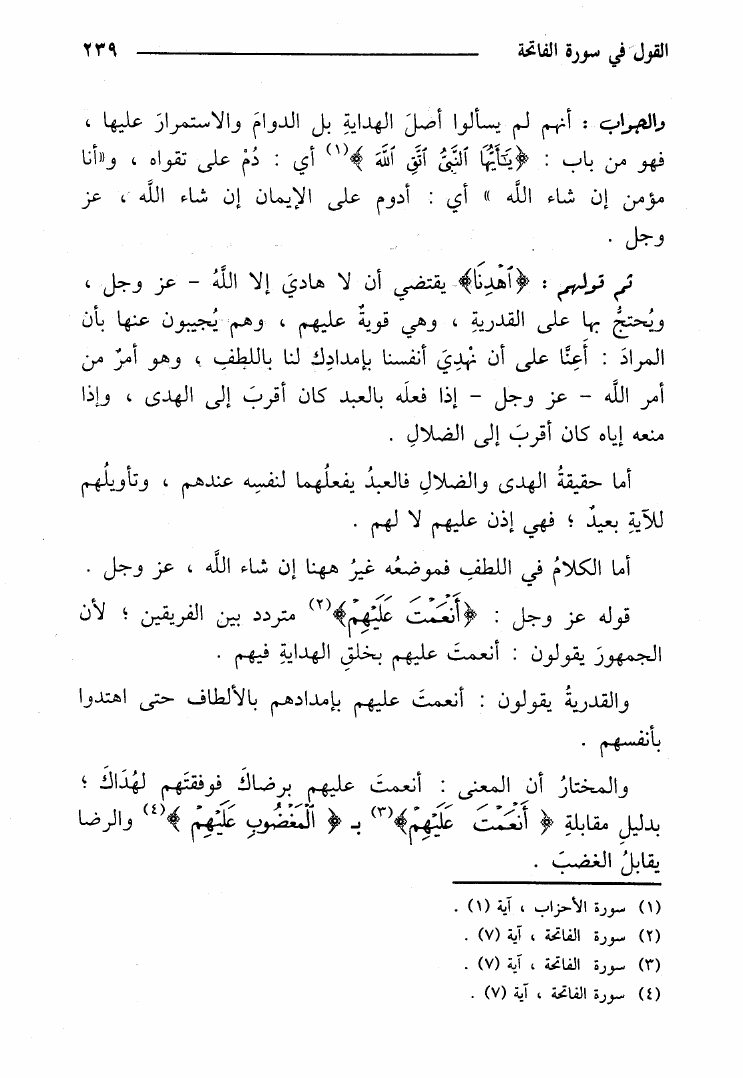 القول في سورة الفاتحة ٢٣٩
والجواب : أنهم لم يسألوا أصلَ الهدايةِ بل الدوامَ والاستمرارَ عليها ،
فهو من باب : ﴿يَـٰٓأَيُّهَا ٱلنَّبِىُّ ٱتَّقِ ٱللَّهَ﴾(١) أي : دُمْ على تقواه ، و«أنا
مؤمن إن شاء اللَّه » أي : أدوم على الإيمان إن شاء اللَّه ، عز
وجل .
ثم قولهم : ﴿ٱهْدِنَا﴾ يقتضي أن لا هاديَ إلا اللَّهُ - عز وجل ،
ويُحتجُّ بها على القدريةِ ، وهي قويةٌ عليهم ، وهم يُجيبون عنها بأن
المرادَ : أَعِنَّا على أن نهْدِيَ أنفسنا بإمدادِك لنا باللطفِ ، وهو أمرٌ من
أمر اللَّه - عز وجل - إذا فعلَه بالعبد كان أقربَ إلى الهدى ، وإذا
منعه إياه كان أقربَ إلى الضلالِ .
أما حقيقةُ الهدى والضلال فالعبدُ يفعلُهما لنفسِه عندهم ، وتأويلُهم
للآيةِ بعيدٌ ؛ فهي إذن عليهم لا لهم .
أما الكلامُ في اللطفِ فموضعُه غيرُ ههنا إن شاء اللَّه ، عز وجل .
قوله عز وجل : ﴿أَنْعَمْتَ عَلَيْهِمْ﴾(٢) متردد بين الفريقين ؛ لأن
الجمهورَ يقولون : أنعمتَ عليهم بخلقِ الهدايةِ فيهم .
والقدريةُ يقولون : أنعمتَ عليهم بإمدادهم بالألطاف حتى اهتدوا
بأنفسهم .
والمختارُ أن المعنى : أنعمتَ عليهم برضاكَ فوفقتَهم لهُدَاكَ ؛
بدليلِ مقابلةِ ﴿ أَنْعَمْتَ عَلَيْهِمْ﴾(٣) بـ ﴿ ٱلْمَغْضُوبِ عَلَيْهِمْ ﴾(٤) والرضا
يقابلُ الغضبَ .
(١) سورة الأحزاب ، آية (١) .
(٢) سورة الفاتحة ، آية (٧) .
(٣) سورة الفاتحة ، آية (٧) .
(٤) سورة الفاتحة ، آية (٧) .